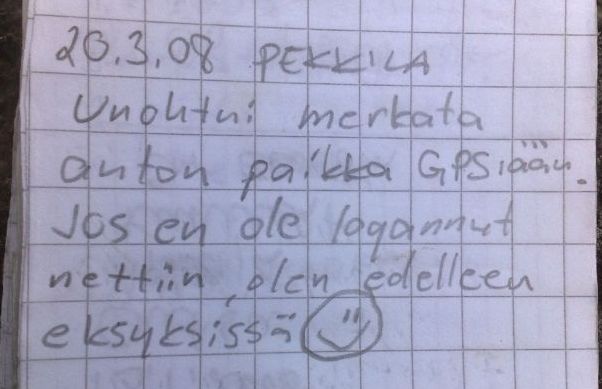 20.3.08 PEKKILA
Unohtui merkata
auton paikka GPS:ään.
Jos en ole logannut
nettiin, olen edelleen
eksyksissä